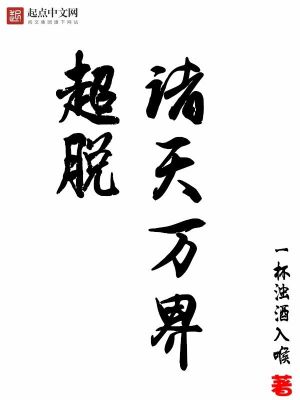 起点中文网
阅文集团旗下网站
诸天万界
超脱
一杯浊酒入喉
著